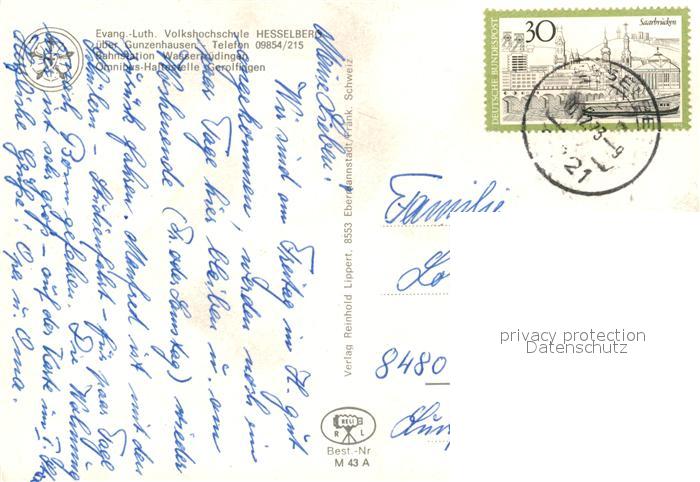 Evang.-Luth. Volkshochschule HESSELBERG
über Gunzenhausen - Telefon 09854/215
Bahnstation Wassertrüdingen
Omnibus-Haltestelle Gerolfingen
Meine Lieben!
Wir sind am Freitag in H. gut
angekommen, werden noch ein
paar Tage hier bleiben u. am
Wochenende (Fr. oder Samstag) wieder
zurück fahren. Manfred ist mit den
Schülern - Studienfahrt - für paar Tage
nach Bonn gefahren. Die Wohnung
ist sehr groß - auf der Karte im
Herzliche Grüße! Opa u. Oma.
Verlag Reinhold Lippert, 8553 Ebermannstadt/Fränk. Schweiz
RELI
R L
Best.-Nr
M 43 A
DEUTSCHE BUNDESPOST
30
Saarbrücken
73
21
Familie
Lo
8480
privacy protection
Datenschutz